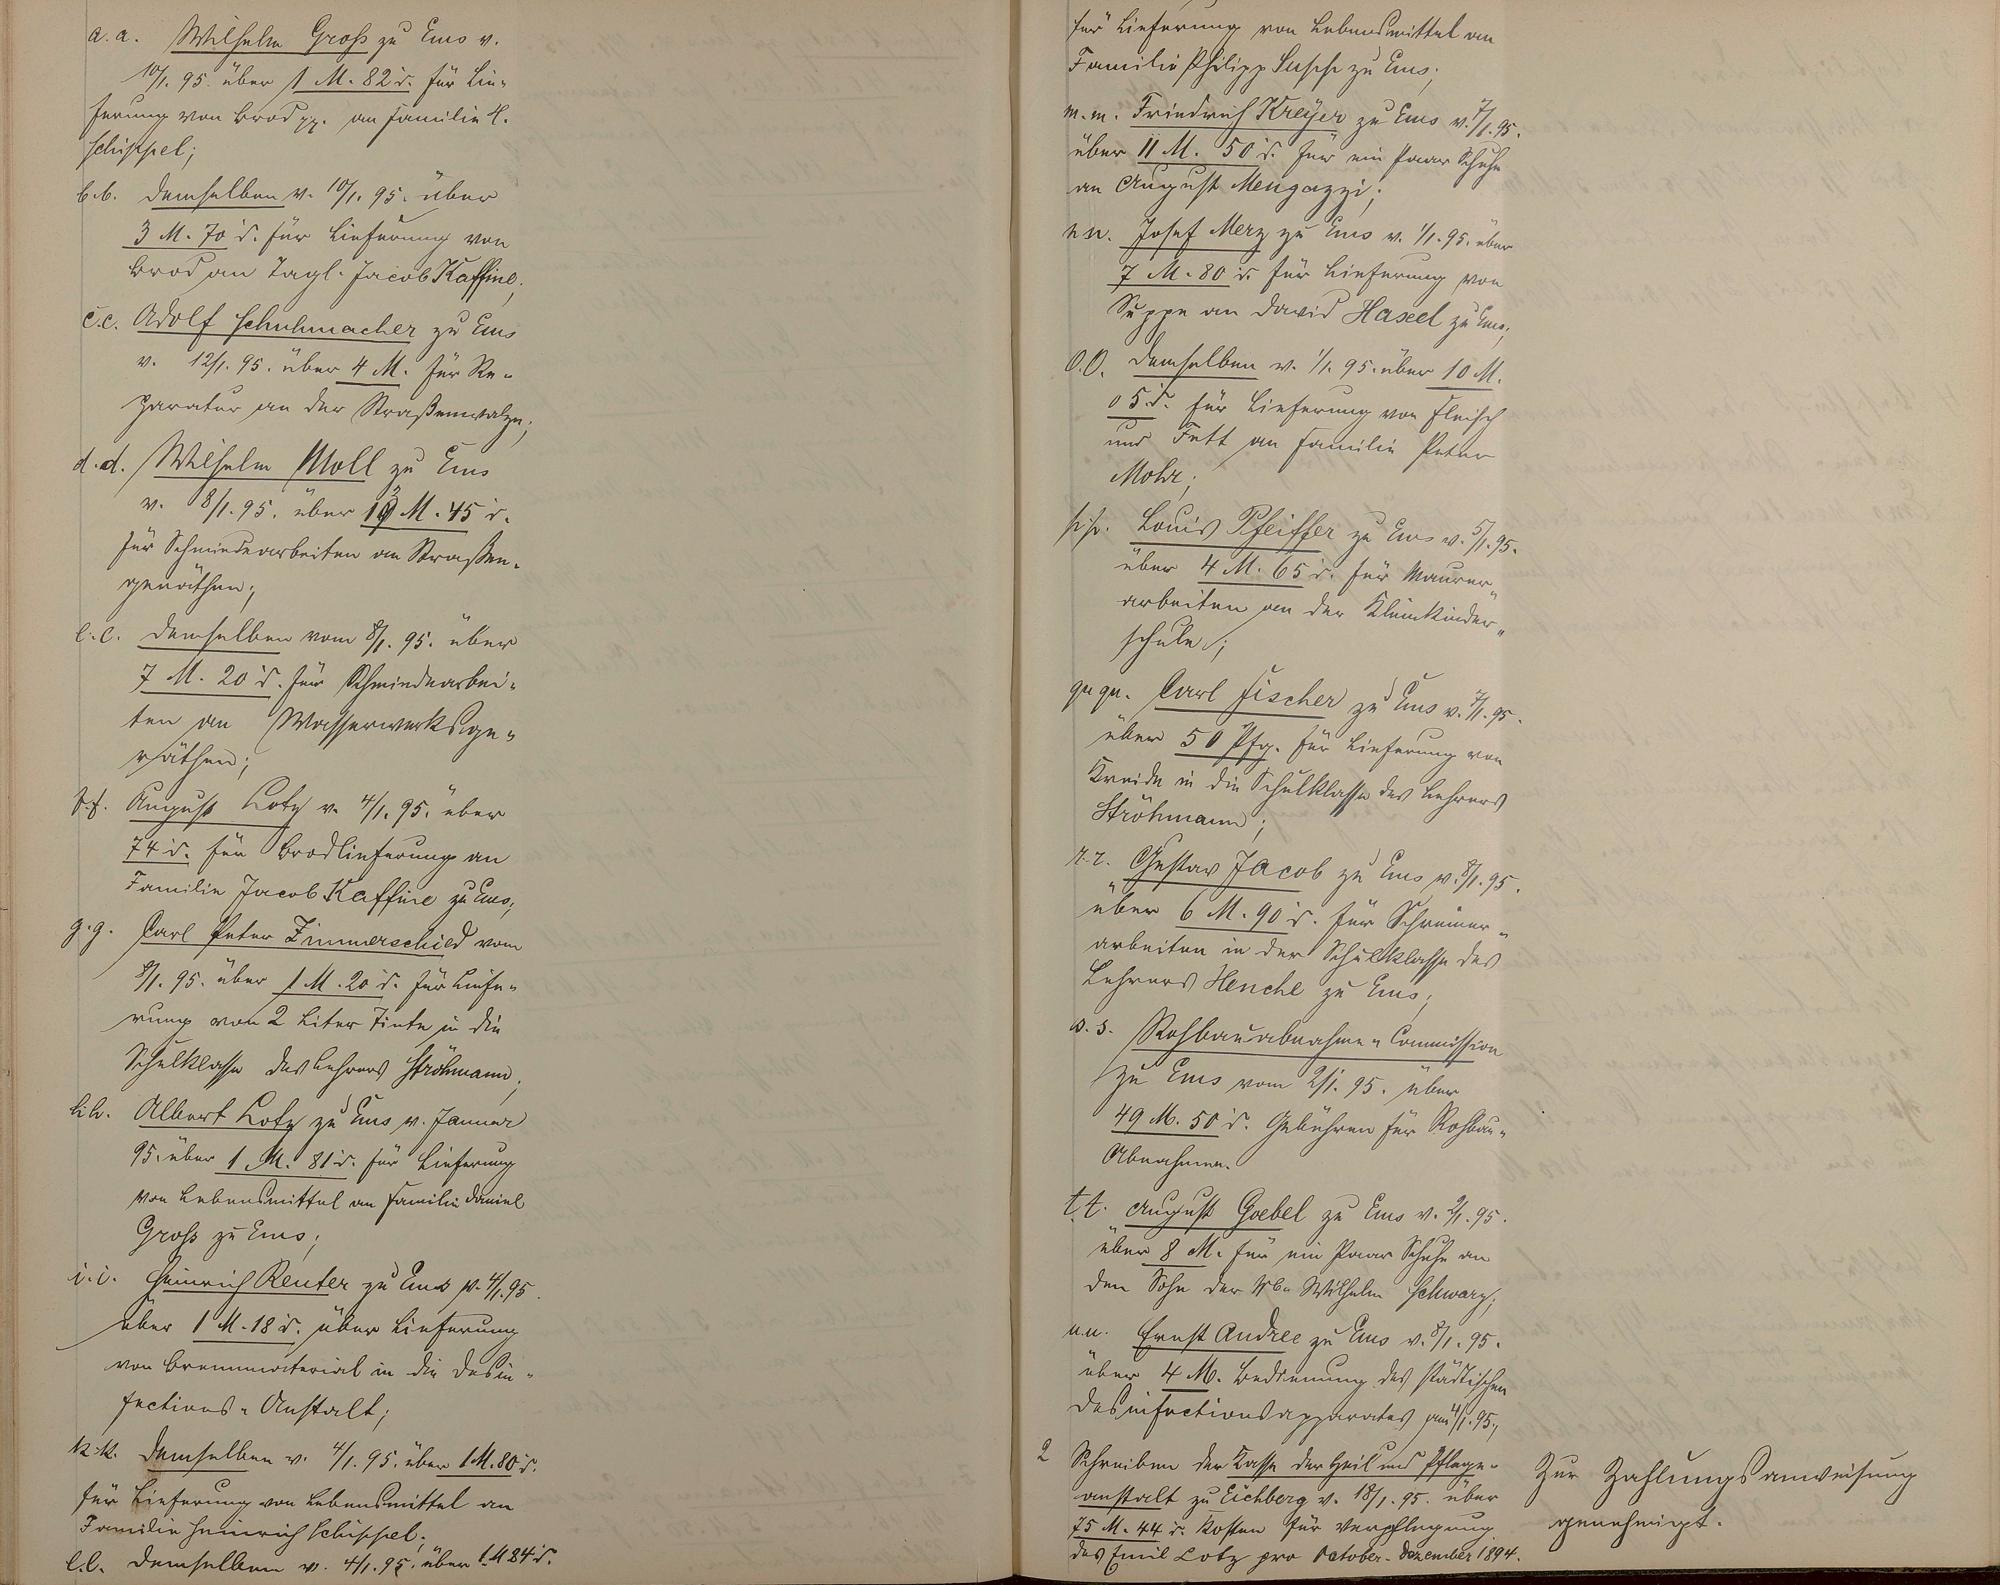 a. a. Wilhelm Groß zu Ems v.
10/1. 95. über 1 M. 82 d. für Lie-
ferung von Brod pp. an Familie H.
Schippel;
b.b. demselben v. 10/1. 95. über
3 M. 70 d. für Lieferung von
Brod an Tagl. Jacob Kaffine;
c.c. Adolf Schuhmacher zu Ems
v. 12/1. 95. über 4 M. für Re-
paratur an der Straßenwalze;
d.d. Wilhelm Moll zu Ems
v. 8/1. 95. über M. 45 d.
für Schmiedearbeiten an Straßen-
geräthen;
e.e. demselben vom 8/1. 95. über
7 M. 20 d. für Schmiedearbei-
ten an Wasserwerksge-
räthen;
f.f. August Lotz v. 4/1. 95. über
74 d. für Brodlieferung an
Familie Jacob Kaffine zu Ems;
g.g. Carl Peter Zimmerschied vom
8/1. 95. über 1 M. 20 d. für Liefe-
rung von 2 Liter Tinte in die
Schulklasse des Lehrers Ströhmann;
h.h. Albert Lotz zu Ems v. Januar
95. über 1 M. 81 d. für Lieferung
von Lebensmittel an Familie Daniel
Groß zu Ems;
i.i. Heinrich Reuter zu Ems v. 4/1. 95.
über 1 M. 18 d. über Lieferung
von Brennmaterial in die Desin-
fections-Anstalt;
k.k. demselben v. 4/1. 95. über 1 M. 80 d.
für Lieferung von Lebensmittel an
Familie Heinrich Schippel;
l.l. demselben v. 4/1. 95. über 1 M 84 d.
für Lieferung von Lebensmittel an
Familie Philipp zu Ems;
m.m. Friedrich Kreyer zu Ems v. 7/1. 95.
über 11 M. 50 d. für ein Paar Schuhe
an August Mengazzi;
n.n. Josef Merz zu Ems v. 1/1. 95. über
7 M. 80 d. für Lieferung von
Suppe an David Hasel zu Ems;
o.o. demselben v. 1/1. 95. über 10 M.
05 d. für Lieferung von Fleisch
und Fett an Familie Peter
Mohr;
p.p. Louis Pfeiffer zu Ems v. 5/1. 95.
über 4 M. 65 d. für Maurer-
arbeiten an der Kleinkinder-
schule;
qu qu. Carl Fischer zu Ems v. 7/1. 95.
über 50 Pfg. für Lieferung von
Kreide in die Schulklasse des Lehrers
Ströhmann;
r.r. Gustav Jacob zu Ems v. 8/1. 95.
über 6 M. 90 d. für Schreiner-
arbeiten in der Schulklasse des
Lehrers Henche zu Ems;
s.s. Rohbauabnahme-Commission
zu Ems vom 2/1. 95. über
49 M. 50 d. Gebühren für Rohbau-
Abnahmen.
t.t. August Goebel zu Ems v. 2/1. 95.
über 8 M. für ein Paar Schuhe an
den Sohn der Wb. Wilhelm Schwarz;
u.u. Ernst Andree zu Ems v. 8/1. 95.
über 4 M. Bedienung des städtischen
Desinfectionsapparates am 4/1. 95.,
2 Schreiben der Kasse der Heil und Pflege-
anstalt zu Eichberg v. 18/1. 95. über
75 M. 44 d. Kosten für Verpflegung
des Emil Lotz pro October-Dezember 1894.
Zur Zahlungsanweisung
genehmigt.